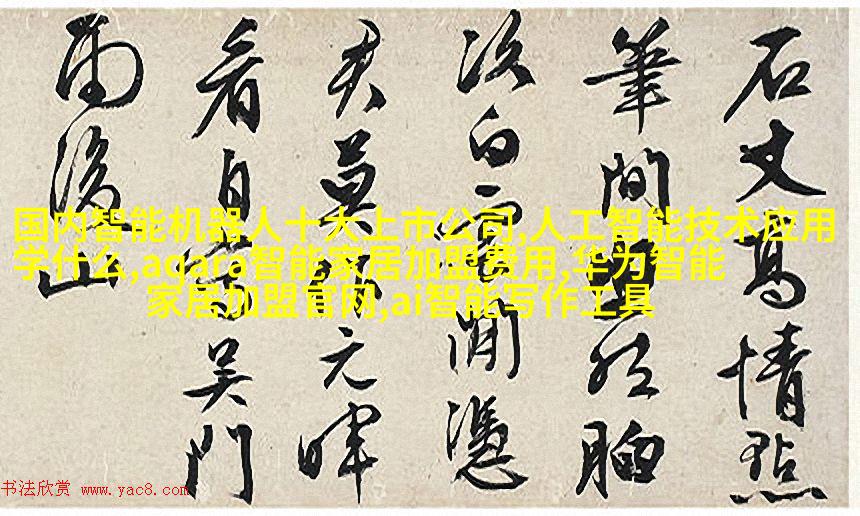 国内智能机器人十大上市公司,人工智能技术应用
学什么,aqara智能家居加盟费用,华为智能
家居加盟官网,ai智能写作工具
石丈高情點
筆間胸
次白雲閒憑
君莫元暉
看吴門
山
书法欣赏 www.yac8.com